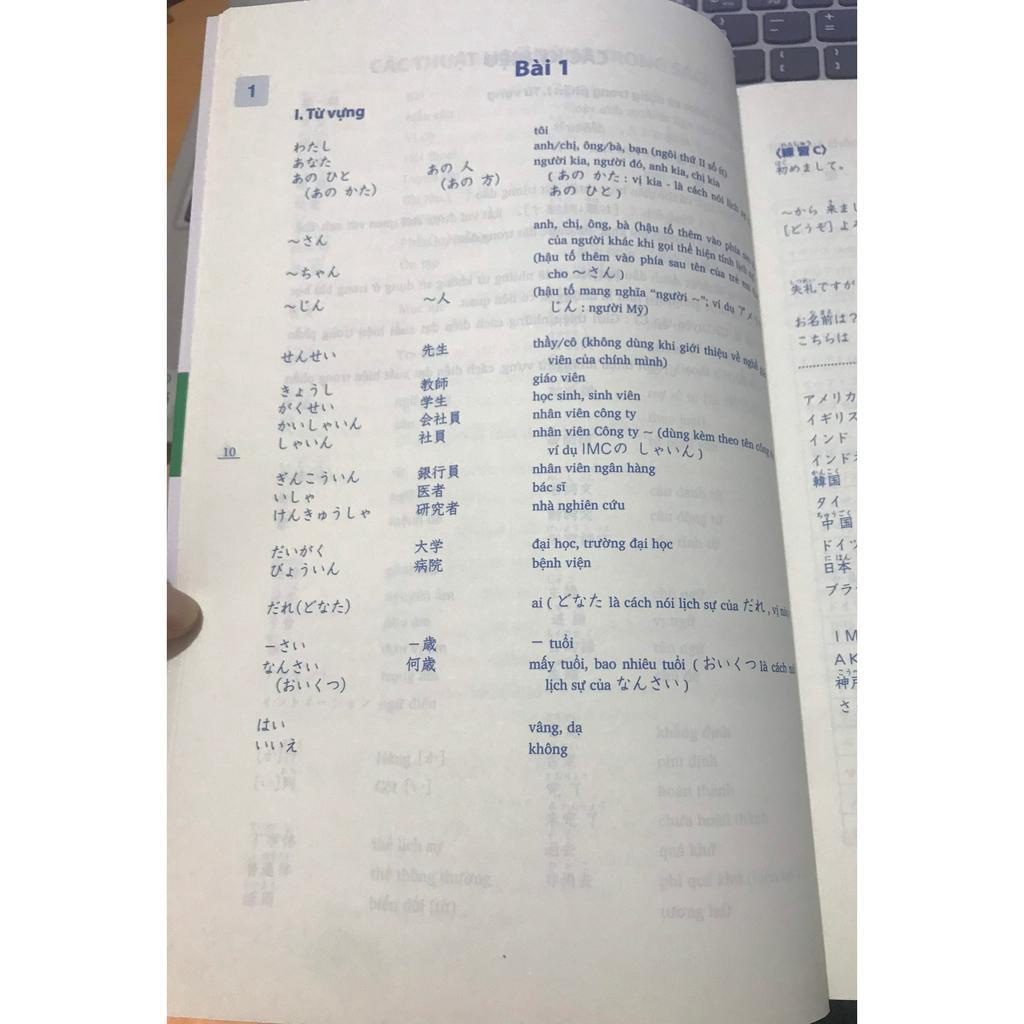 Bài 1
1
I. Từ vựng
わたし tôi
あなた anh/chị, ông/bà, bạn (ngôi thứ II số ít)
あの ひと あの 人 người kia, người đó, anh kia, chị kia
(あの かた) (あの 方) (あの かた : vị kia - là cách nói lịch sự
あの ひと )
~さん anh, chị, ông, bà (hậu tố thêm vào phía sau
của người khác khi gọi thể hiện tính lịch sự
~ちゃん (hậu tố thêm vào phía sau tên của trẻ em
cho ~さん )
~じん ~人 (hậu tố mang nghĩa “người ~”; ví dụ アメ
じん : người Mỹ)
せんせい 先生 thầy/cô (không dùng khi giới thiệu về nghề
viên của chính mình)
きょうし 教師 giáo viên
がくせい 学生 học sinh, sinh viên
かいしゃいん 会社員 nhân viên công ty
しゃいん 社員 nhân viên Công ty ~ (dùng kèm theo tên công
ví dụ IMCの しゃいん )
10
ぎんこういん 銀行員 nhân viên ngân hàng
いしゃ 医者 bác sĩ
けんきゅうしゃ 研究者 nhà nghiên cứu
だいがく 大学 đại học, trường đại học
びょういん 病院 bệnh viện
だれ(どなた) ai ( どなた là cách nói lịch sự của だれ , vị
－さい －歳 － tuổi
なんさい 何歳 mấy tuổi, bao nhiêu tuổi ( おいくつ là cách
(おいくつ) lịch sự của なんさい )
はい vâng, dạ
いいえ không
〈練習C〉
初めまして。
~から 来まし
[どうぞ] よろ
失礼ですが
お名前は?
こちらは
アメリカ
イギリス
インド
インド
韓国
タイ
中国
ドイツ
日本
ブラ
IM
AK
神戸
さ